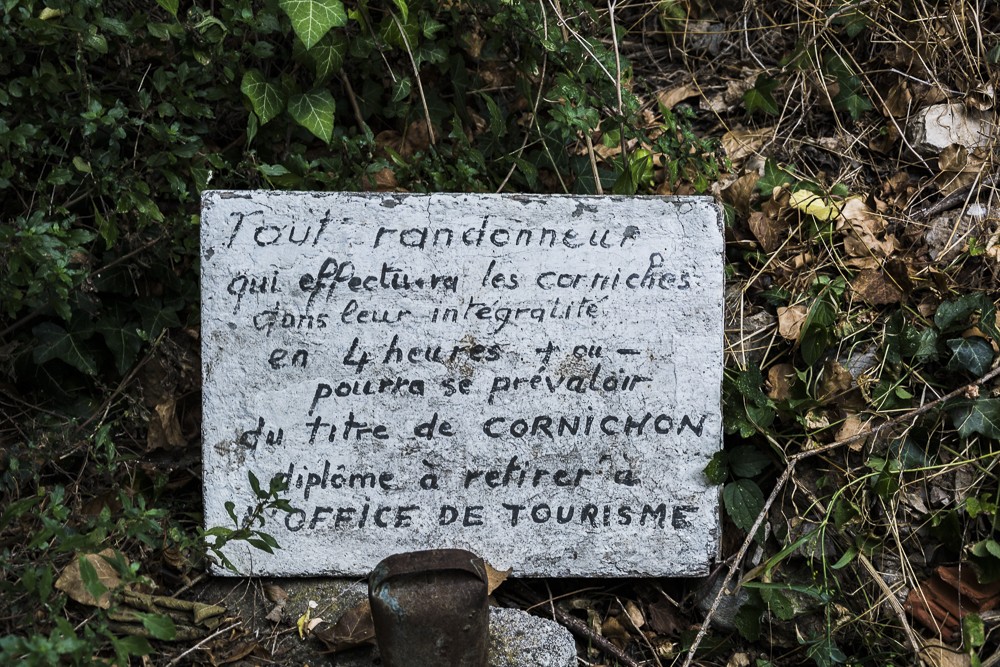 Tout randonneur
qui effectuera les corniches
dans leur intégralité
en 4 heures + ou -
pourra se prévaloir
du titre de CORNICHON
diplôme à retirer à
L'OFFICE DE TOURISME